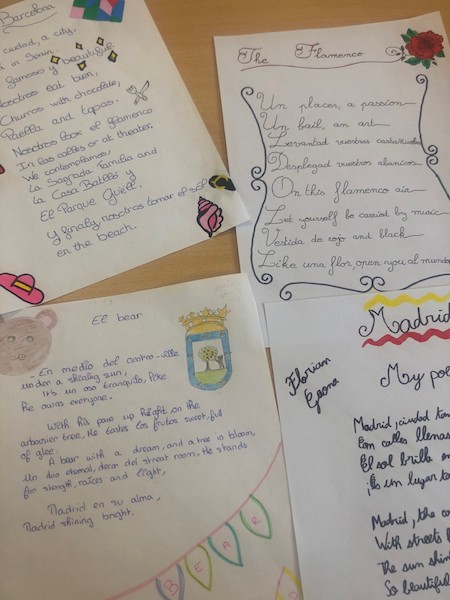 Barcelona
ciudad, a city.
in Spain.
famoso y beautiful
Nosotros eat bien,
Churros with chocolate,
Paella and tapas.
Nosotros look el flamenco
In las calles or at theater.
We contemplamos,
La Sagrada Familia and
La Casa Batlló y
El Parque Güell.
Y finaly nosotros tomar el sol
en the beach.
The Flamenco
Un placer, a passion
Un bail, an art
Levantad vuestras castañuelas
Desplegad vuestros abanicos
On this flamenco air
Let yourself be carried by music
Vestida de rojo and black
Like una flor, open you al mundo
El bear
En medio del centro-ville
under a shining sun,
It's un oso tranquilo, like
he owns everyone.
With his paw up hight, on the
arbousier tree, He tastes los frutos sweet, full
of glee.
A bear with a dream, and a tree in bloom,
un duo eternal, decor del street room. He stands
for strength, raíces and light,
Madrid en su alma,
Madrid shining bright.
BEAR
D
Madrid
My po
Florian
Madrid, ciudad
Con calles llenas
El sol brilla en
¡Es un lugar
Madrid, the
With streets
The sun shin
So beautiful